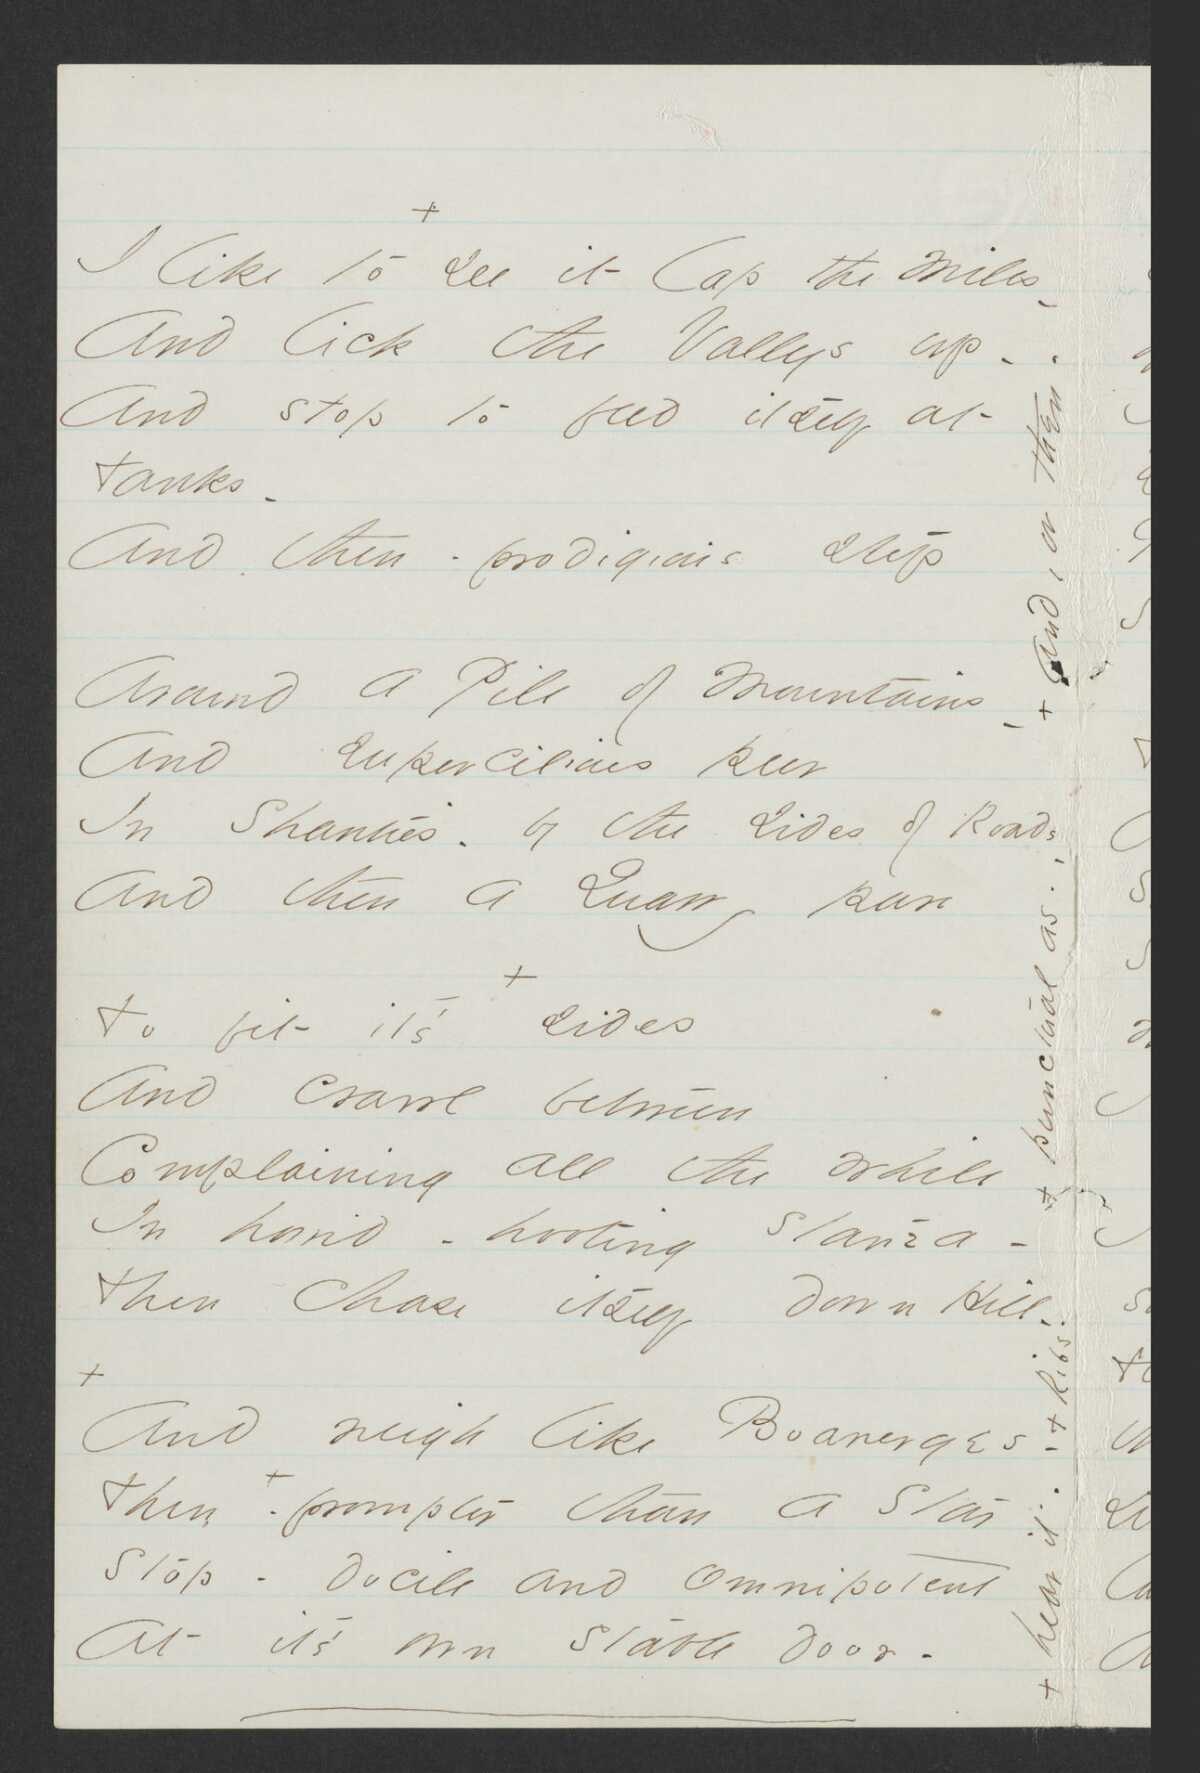 I like to + see it lap the Miles -
And lick the Valleys up -
And stop to feed itself at
tanks -
And then - prodigious step
Around a Pile of Mountains -
And supercilious peer
In Shanties - by the sides of Roads -
And then a Quarry pare
To fit it's + sides
And crawl between
Complaining all the while
In horrid - hooting stanza -
Then chase itself down Hill -
+ And neigh like Boanerges -
Then + - prompter than a Star
Stop - docile and omnipotent
At it's own stable door -
+ hear it - + Ribs - + punctual as - + and, or then -